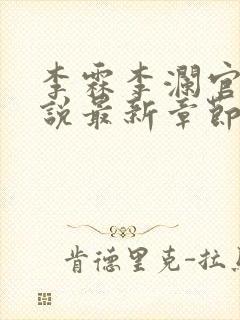 李霖李瀾官
說最新章節
肯德里克-拉